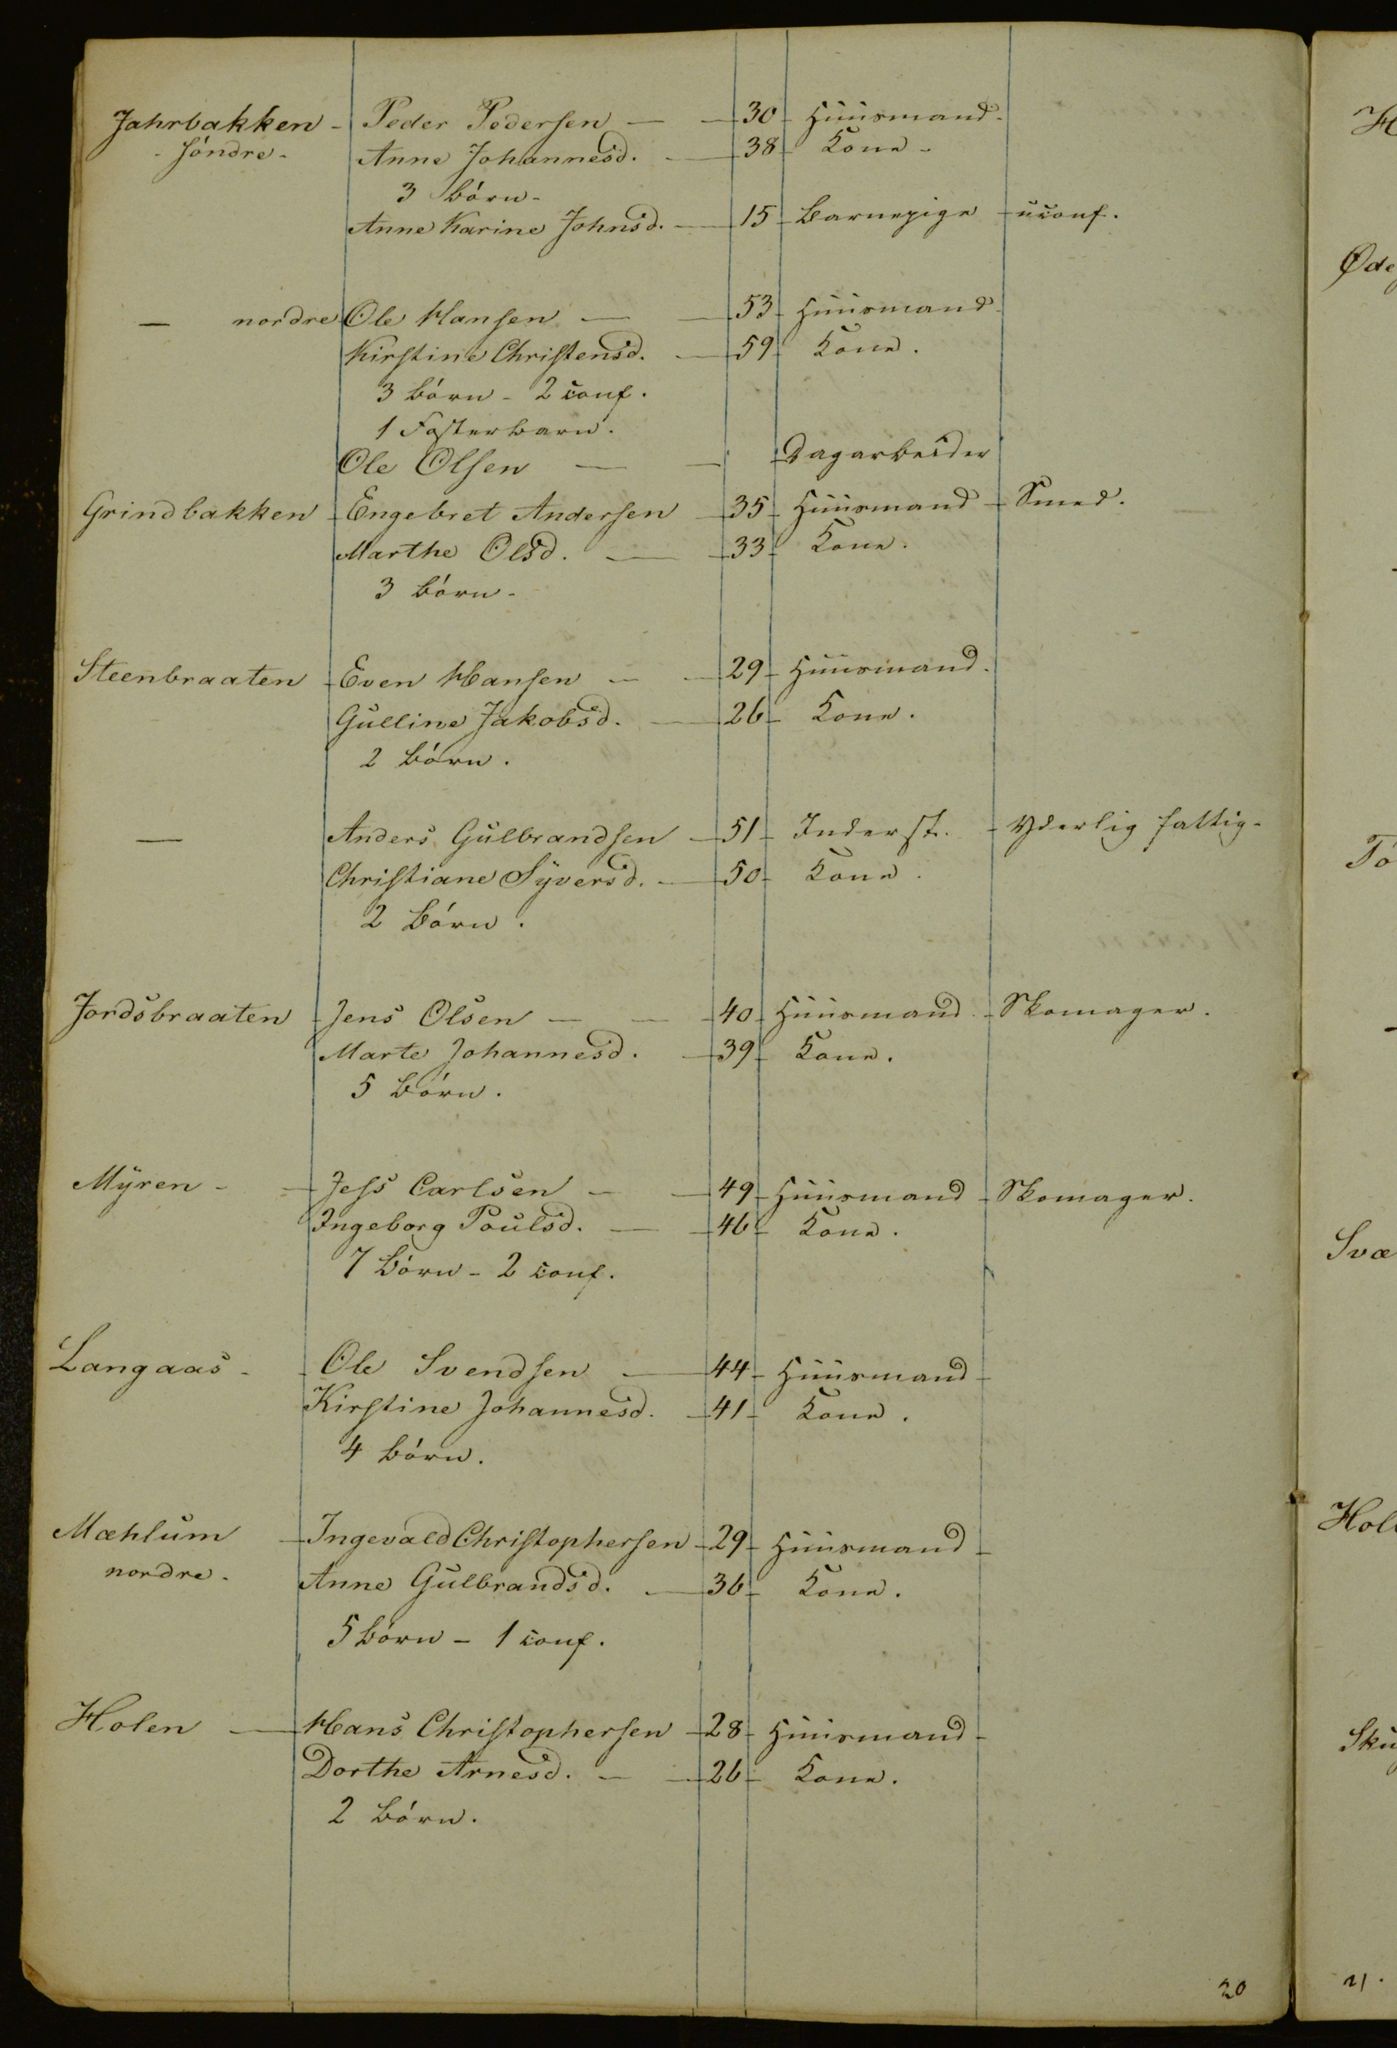 Jahrbakken - Peder Pedersen — — 30 - Huusmand -
- söndre - Anne Johannesd. — 38 - Kone -
3 Börn -
Anne Karine Johnsd. — 15 - Barnepige - uconf.
— nordre Ole Hansen — — 53 - Huusmand -
Kirstine Christensd. — 59 - Kone .
3 Börn - 2 conf .
1 Fosterbarn .
Ole Olsen — — Dagarbeider
Grindbakken - Engebret Andersen - 35 - Huusmand - Smed .
Marthe Olsd. — 33 - Kone .
3 Börn -
Steenbraaten - Even Hansen — - 29 - Huusmand .
Gulline Jakobsd. — 26 - Kone .
2 Börn .
— Anders Gulbrandsen - 51 - Inderst. - Yderlig fattig -
Christiane Syversd. — 50 - Kone .
2 Börn .
Jordsbraaten - Jens Olsen — — 40 - Huusmand - Skomager .
Marte Johannesd. — 39 - Kone .
5 Börn .
Myren - — Jess Carlsen — — 49 - Huusmand - Skomager .
Ingeborg Poulsd. — — 46 - Kone .
7 Börn - 2 conf .
Langaas - - Ole Svendsen — 44 - Huusmand -
Kirstine Johannesd. - 41 - Kone .
4 Börn .
Mæhlum - Ingevald Christophersen - 29 - Huusmand -
nordre - Anne Gulbrandsd. — 36 - Kone .
5 Börn - 1 conf .
Holen — Hans Christophersen - 28 - Huusmand -
Dorthe Arnesd. — — 26 - Kone .
2 Börn .
20
H
Øde
Tö
Svæ
Hol
Sku
21 .